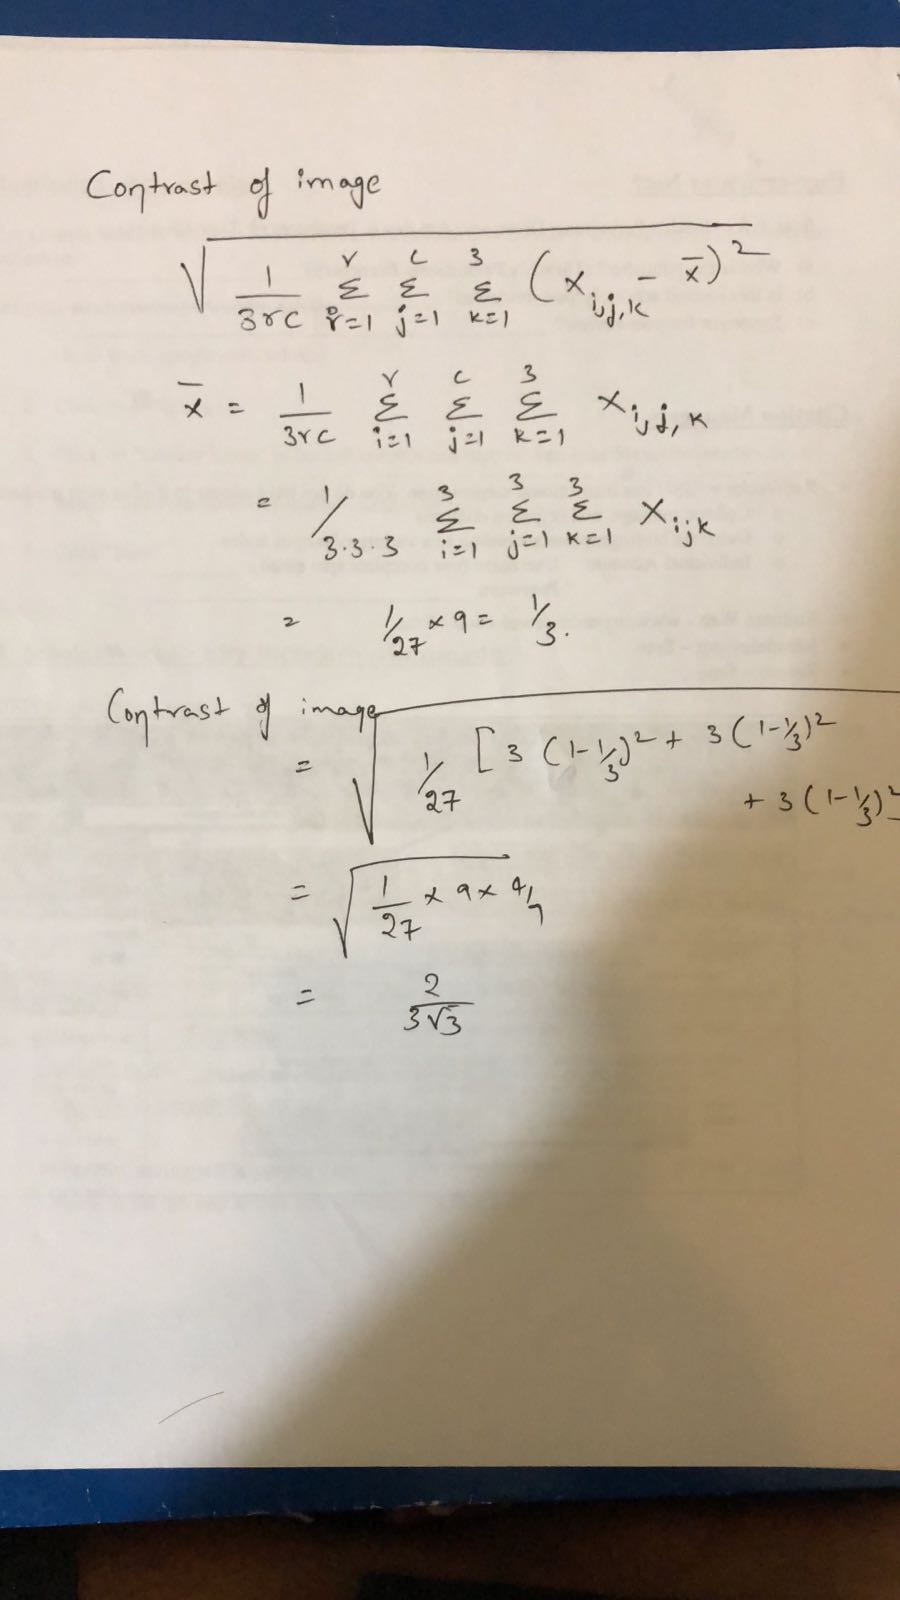 Contrast of image
√ 1/3rc Σ r=1 r Σ j=1 c Σ k=1 3 (x i,j,k - x̄)²
x̄ = 1/3rc Σ i=1 r Σ j=1 c Σ k=1 3 x i,j,k
= 1/3.3.3 Σ i=1 3 Σ j=1 3 Σ k=1 3 x ijk
= 1/27 × 9 = 1/3.
Contrast of image
= √ 1/27 [3 (1-1/3)² + 3(1-1/3)²
+ 3(1-1/3)²
= √ 1/27 × 9 × 4/9
= 2/3√3